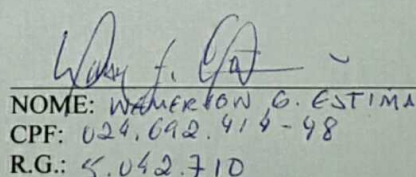 NOME: WAMERSON G. ESTIMA
CPF: 024.692.414-48
R.G.: 5.042.710